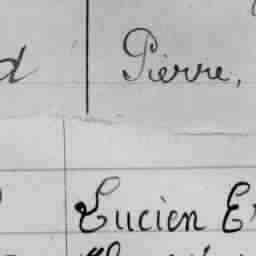 d Pierre,
Lucien